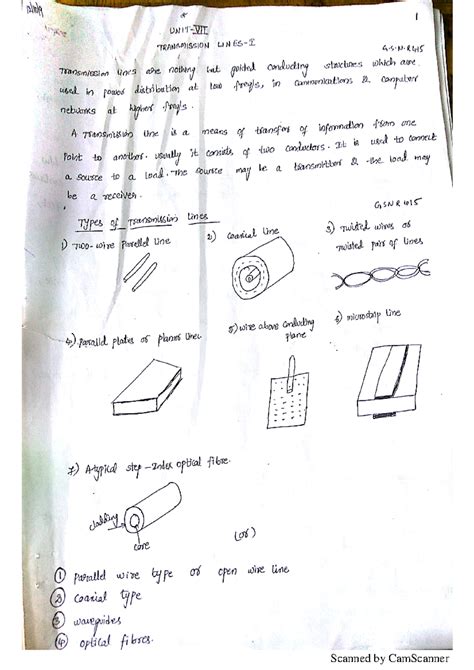 1
UNIT-VII
TRANSMISSION LINES-I
G.S.N.R415
Transmission lines are nothing but guided conducting structures which are
used in power distribution at low freq/s, in communications & computer
networks at higher freq/s.
A Transmission line is a means of transfer of information from one
point to another. usually it consists of two conductors. It is used to connect
a source to a load. The source may be a transmitter & the load may
be a receiver.
GSNR415
Types of Transmission lines
1) Two-wire Parallel line
2) coaxial line
3) Twisted wires or
Twisted pair of lines
4) Parallel plates or planar lines
5) wire above conducting
plane
6) microstrip line
7) A typical step-Index optical fibre.
cladding
core
(or)
1 parallel wire type or open wire line
2 coaxial type
3 waveguides
4 optical fibres.
Scanned by CamScanner